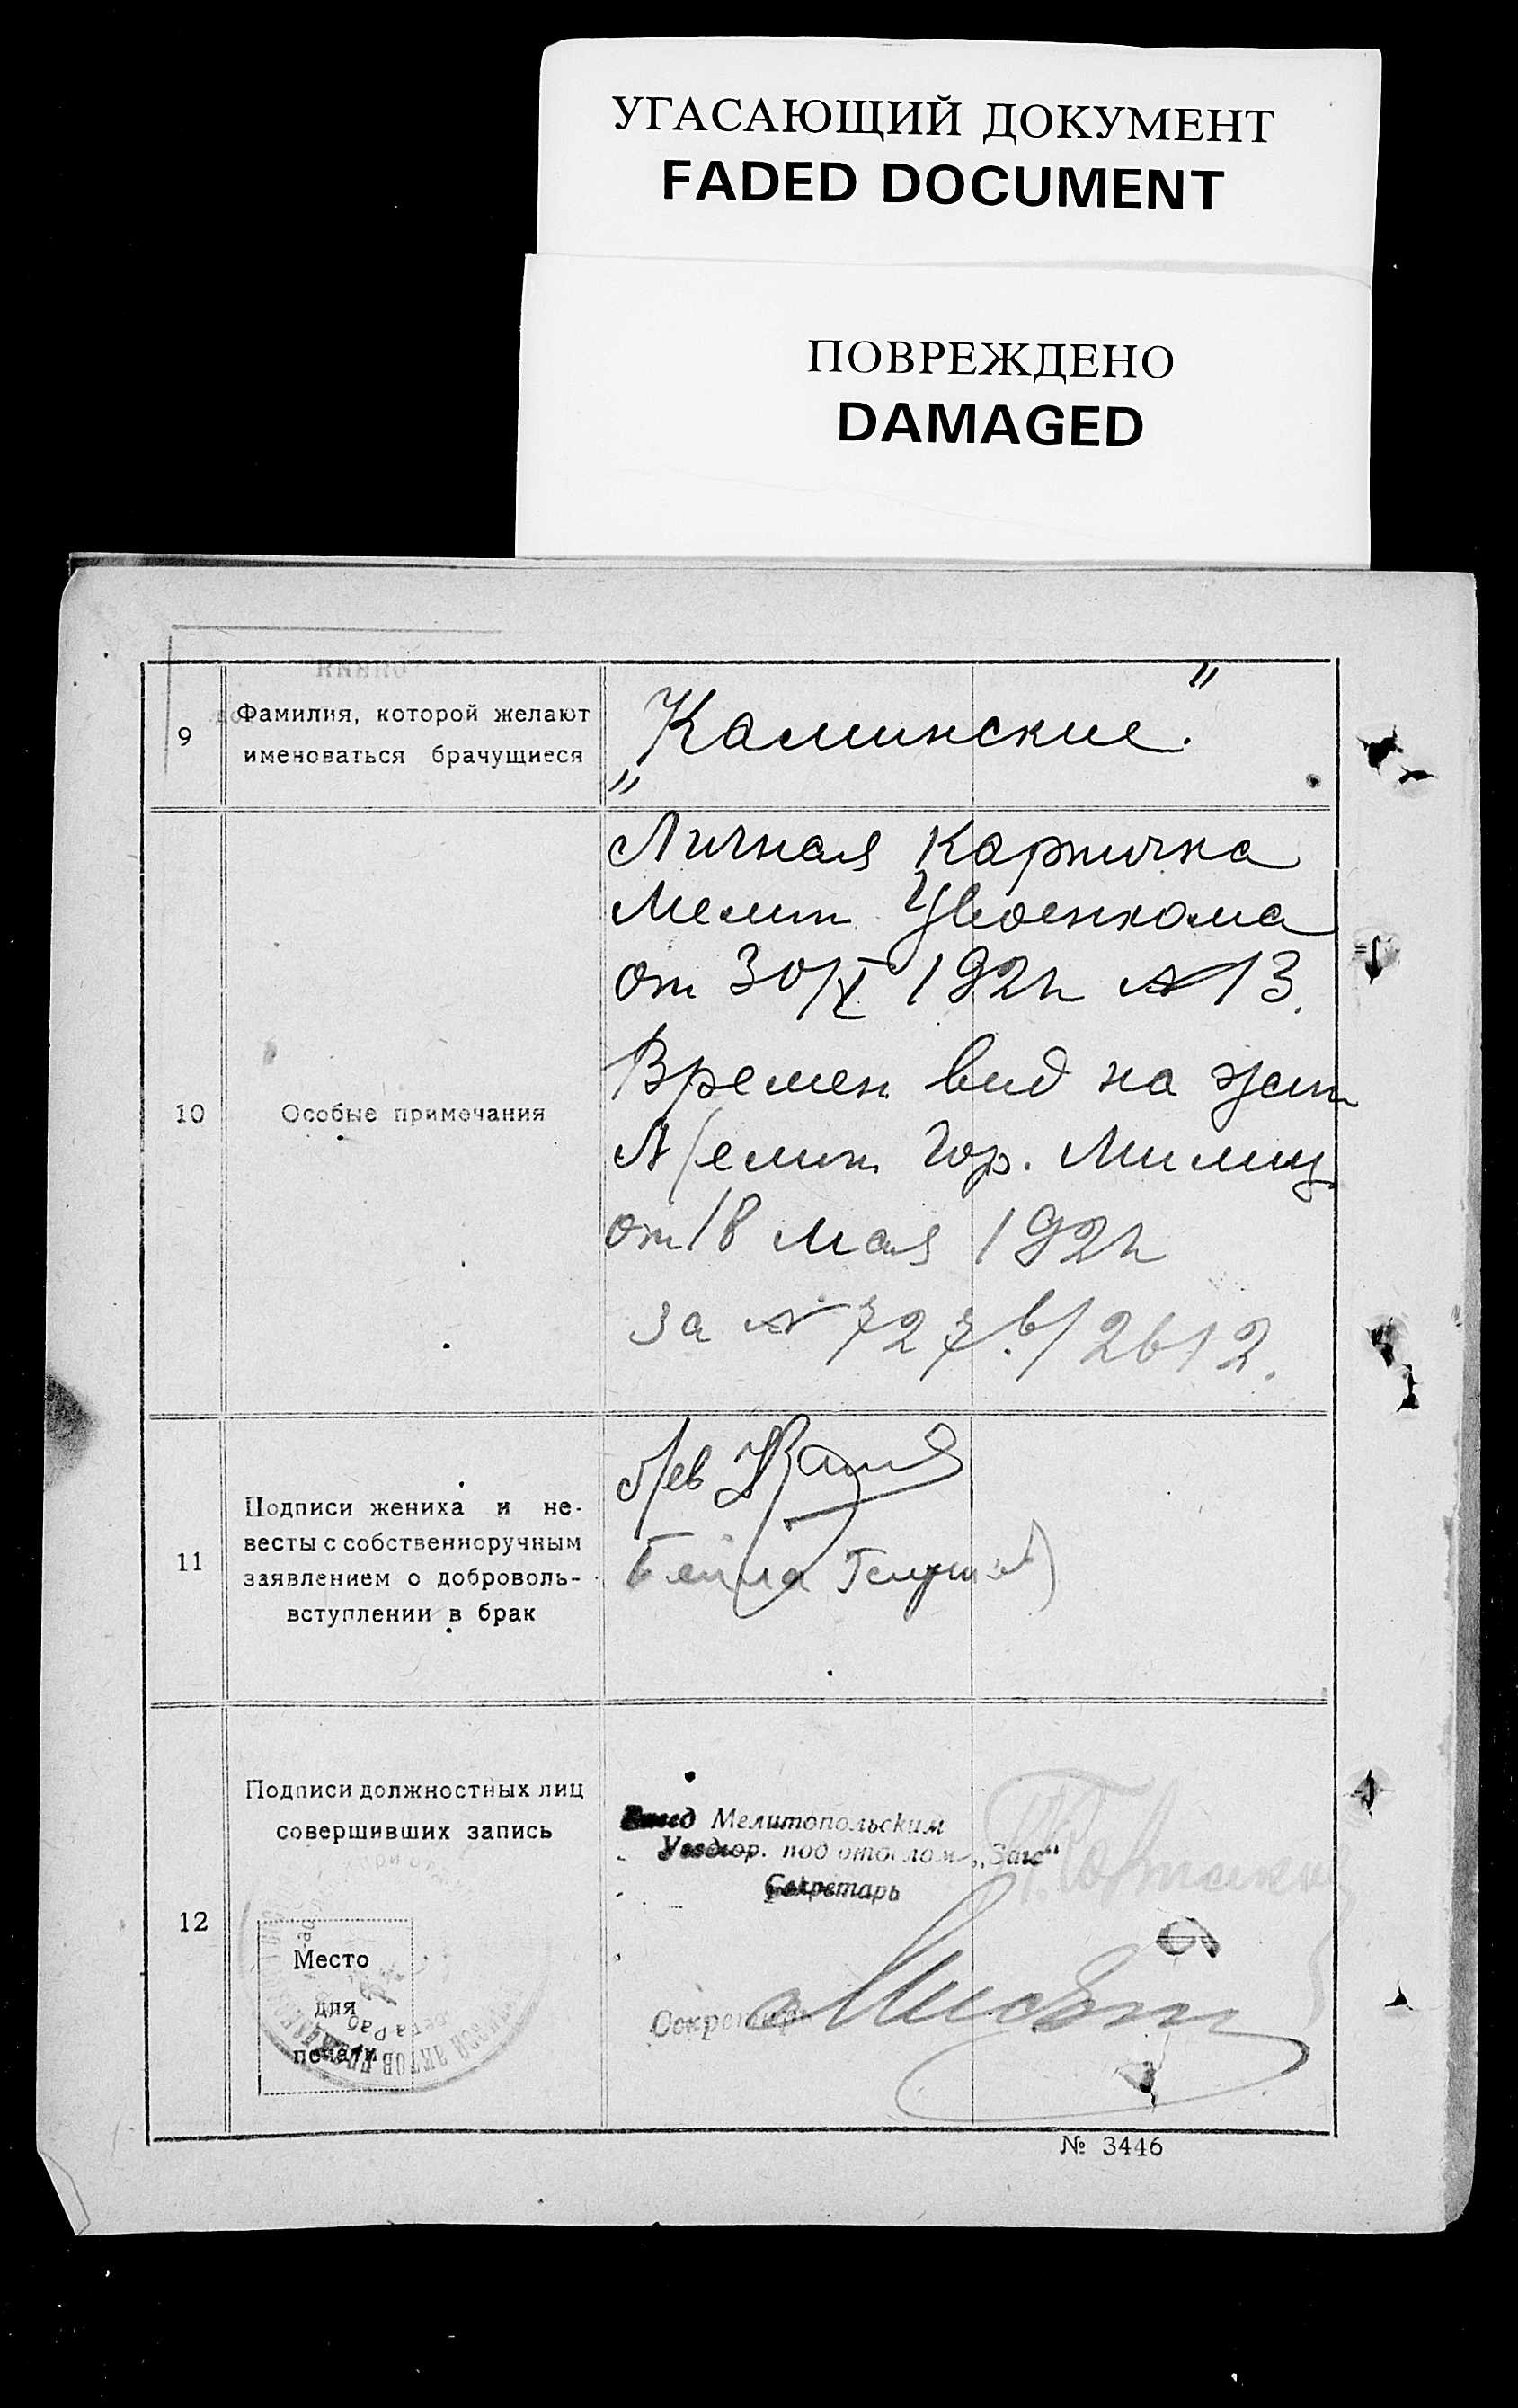 УГАСАЮЩИЙ ДОКУМЕНТ
FADED DOCUMENT
ПОВРЕЖДЕНО
DAMAGED
9
Фамилия, которой желают
именоваться брачущиеся
„Каминские."
10
Особые примечания
Личная карточка
Мелит Увоенкома
от 30/X 1922 № 13.
Времен вид на жит
Мелит Гор. Милиц
от 18 мая 1922
за №
11
Подписи жениха и не-
весты с собственноручным
заявлением о доброволь-
вступлении в брак
Лев
Бейла
12
Подписи должностных лиц
совершивших запись
Место
для
печати
Мелитопольским
под "Загс"
Секретарь
Секретарь
№ 3446